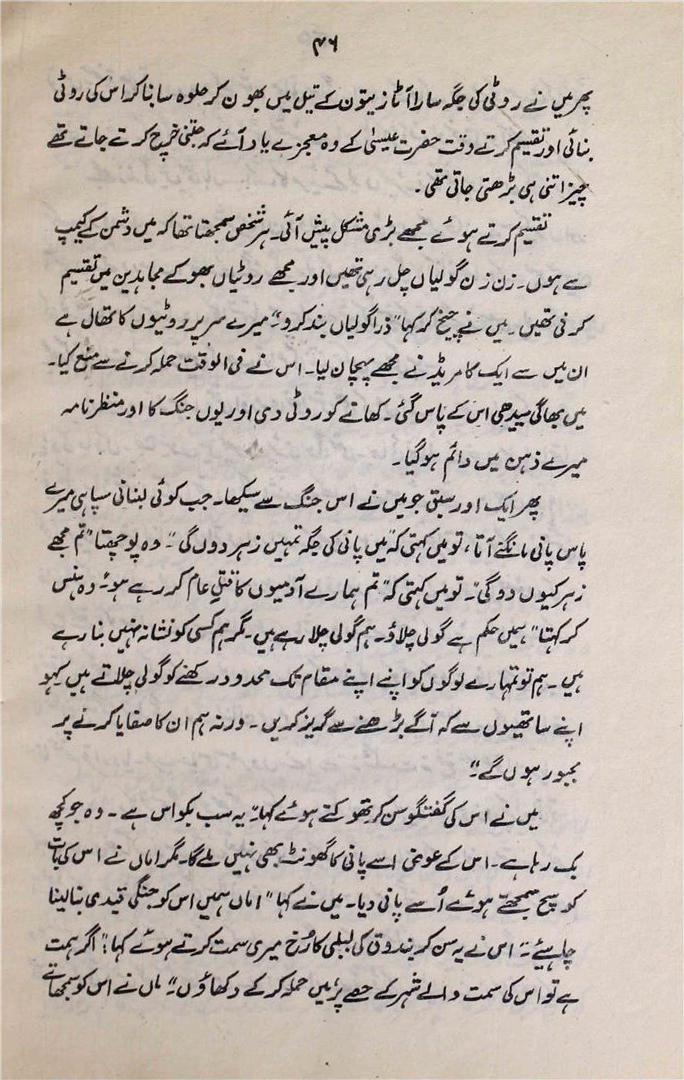 ۴۶
پھر میں نے روٹی کی جگہ سارا آٹا زیتون کے تیل میں بھون کر حلوہ سا بنا کر اس کی روٹی
بنائی اور تقسیم کرتے وقت حضرت عیسیٰ کے وہ معجزے یاد آئے کہ جتنی خرچ کرتے جاتے تھے
چیز اتنی ہی بڑھتی جاتی تھی۔
تقسیم کرتے ہوئے مجھے بڑی مشکل پیش آئی۔ ہر شخص سمجھتا تھا کہ میں دشمن کے کیمپ
سے ہوں۔ زن زن گولیاں چل رہی تھیں اور مجھے روٹیاں بھوکے مجاہدین میں تقسیم
کرنی تھیں۔ میں نے چیخ کر کہا "ذرا گولیاں بند کرو"۔ میرے سر پر روٹیوں کا تھال ہے
ان میں سے ایک کامریڈ نے مجھے پہچان لیا۔ اس نے فی الوقت حملہ کرنے سے منع کیا۔
میں بھاگی سیدھی اس کے پاس گئی۔ کھانے کو روٹی دی اور یوں جنگ کا اور منظرنامہ
میرے ذہن میں دائم ہو گیا۔
پھر ایک اور سبق جو میں نے اس جنگ سے سیکھا۔ جب کوئی لبنانی سپاہی میرے
پاس پانی مانگنے آتا، تو میں کہتی کہ "میں پانی کی جگہ تمہیں زہر دوں گی"۔ وہ پوچھتا "تم مجھے
زہر کیوں دو گی"۔ تو میں کہتی کہ "تم ہمارے آدمیوں کا قتلِ عام کر رہے ہو"۔ وہ ہنس
کر کہتا "ہمیں حکم ہے گولی چلاؤ۔ ہم گولی چلا رہے ہیں۔ مگر ہم کسی کو نشانہ نہیں بنا رہے
ہیں۔ ہم تو تمہارے لوگوں کو اپنے اپنے مقام تک محدود رکھنے کو گولی چلاتے ہیں کہو
اپنے ساتھیوں سے کہ آگے بڑھنے سے گریز کریں۔ ورنہ ہم ان کا صفایا کرنے پر
مجبور ہوں گے"۔
میں نے اس کی گفتگو سن کر تھوکتے ہوئے کہا "یہ سب بکواس ہے۔ وہ جو کچھ
بک رہا ہے۔ اس کے عوض اسے پانی کا گھونٹ بھی نہیں ملے گا۔ مگر اماں نے اس کی بات
کو سچ سمجھتے ہوئے اُسے پانی دیا۔ میں نے کہا "اماں ہمیں اس کو جنگی قیدی بنا لینا
چاہیئے"۔ اس نے یہ سن کر بندوق کی لبلبی کا رُخ میری سمت کرتے ہوئے کہا، "اگر ہمت
ہے تو اس کی سمت والے شہر کے حصے پر میں حملہ کر کے دکھاؤں"۔ ماں نے اس کو سمجھاتے